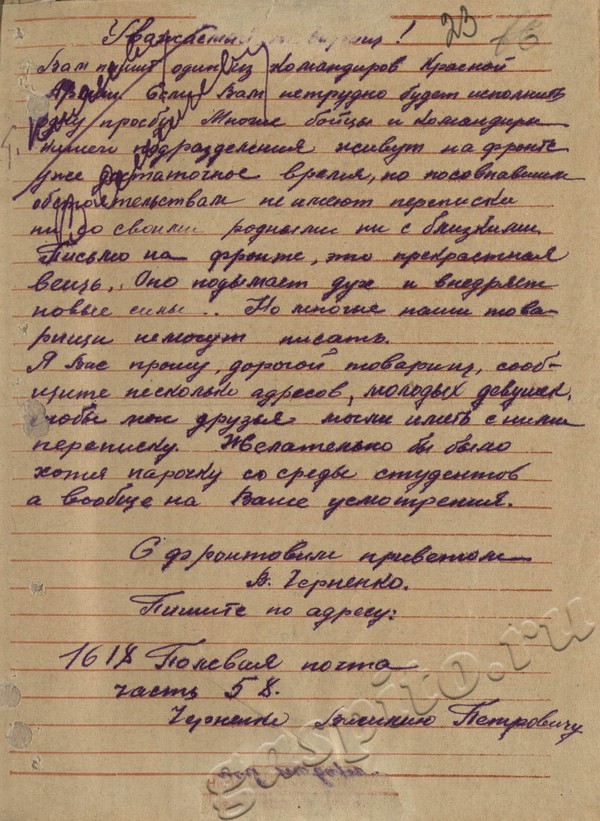 23
Уважаемый товарищ!
Вам пишет один из командиров Красной
Армии Если Вам нетрудно будет исполнить
одну просьбу. Многие бойцы и командиры
нашего подразделения живут на фронте
уже достаточное время, но посовпавшим
обстоятельствам не имеют переписки
ни со своими родными ни с близкими.
Письмо на фронте, это прекрастная
вещь,. Оно подымает дух и внедряет
новые силы.. Но многие наши това-
рищи немогут писать.
Я Вас прошу, дорогой товарищ, сооб-
щите несколько адресов, молодых девушек,
чтобы мои друзья могли иметь с ними
переписку. Желательно бы было
хотя парочку со среды студентов
а вообще на Ваше усмотрения.
С фронтовым приветом
В. Черненко.
Пишите по адресу:
1618 Полевая почта
часть 58.
Черненко Василию Петровичу
gaspito.ru